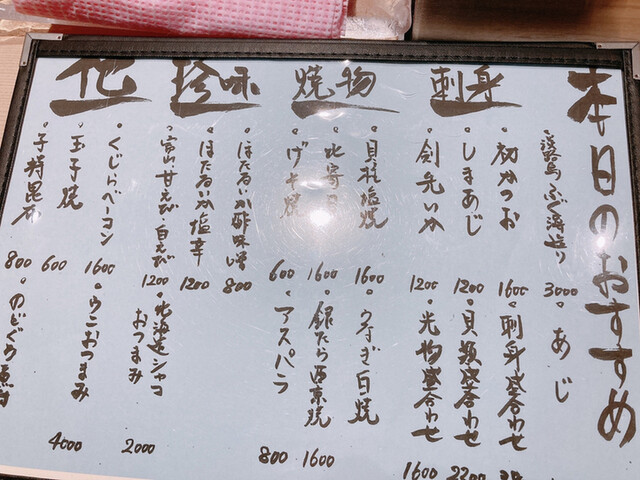 本日のおすすめ
刺身
淡路島ふぐ薄造り 3000
・あじ
・初かつお 1600
・刺身盛合わせ
・しまあじ 1200
・貝類盛合わせ 2200
・剣先いか 1200
・光物盛合わせ 1600
焼物
・貝柱塩焼 1600
・うなぎ白焼
1600
・銀たら西京焼 1600
・げそ焼 600
・アスパラ 800
珍味
・ほたるいか酢味噌 800
・ほたるいか塩辛 1200
・富山甘えび白えび 1200
・北海道シャコおつまみ 2000
他
・くじらベーコン 1600
・うにおつまみ 4000
・玉子焼 600
・子持昆布 800
・のどぐろ